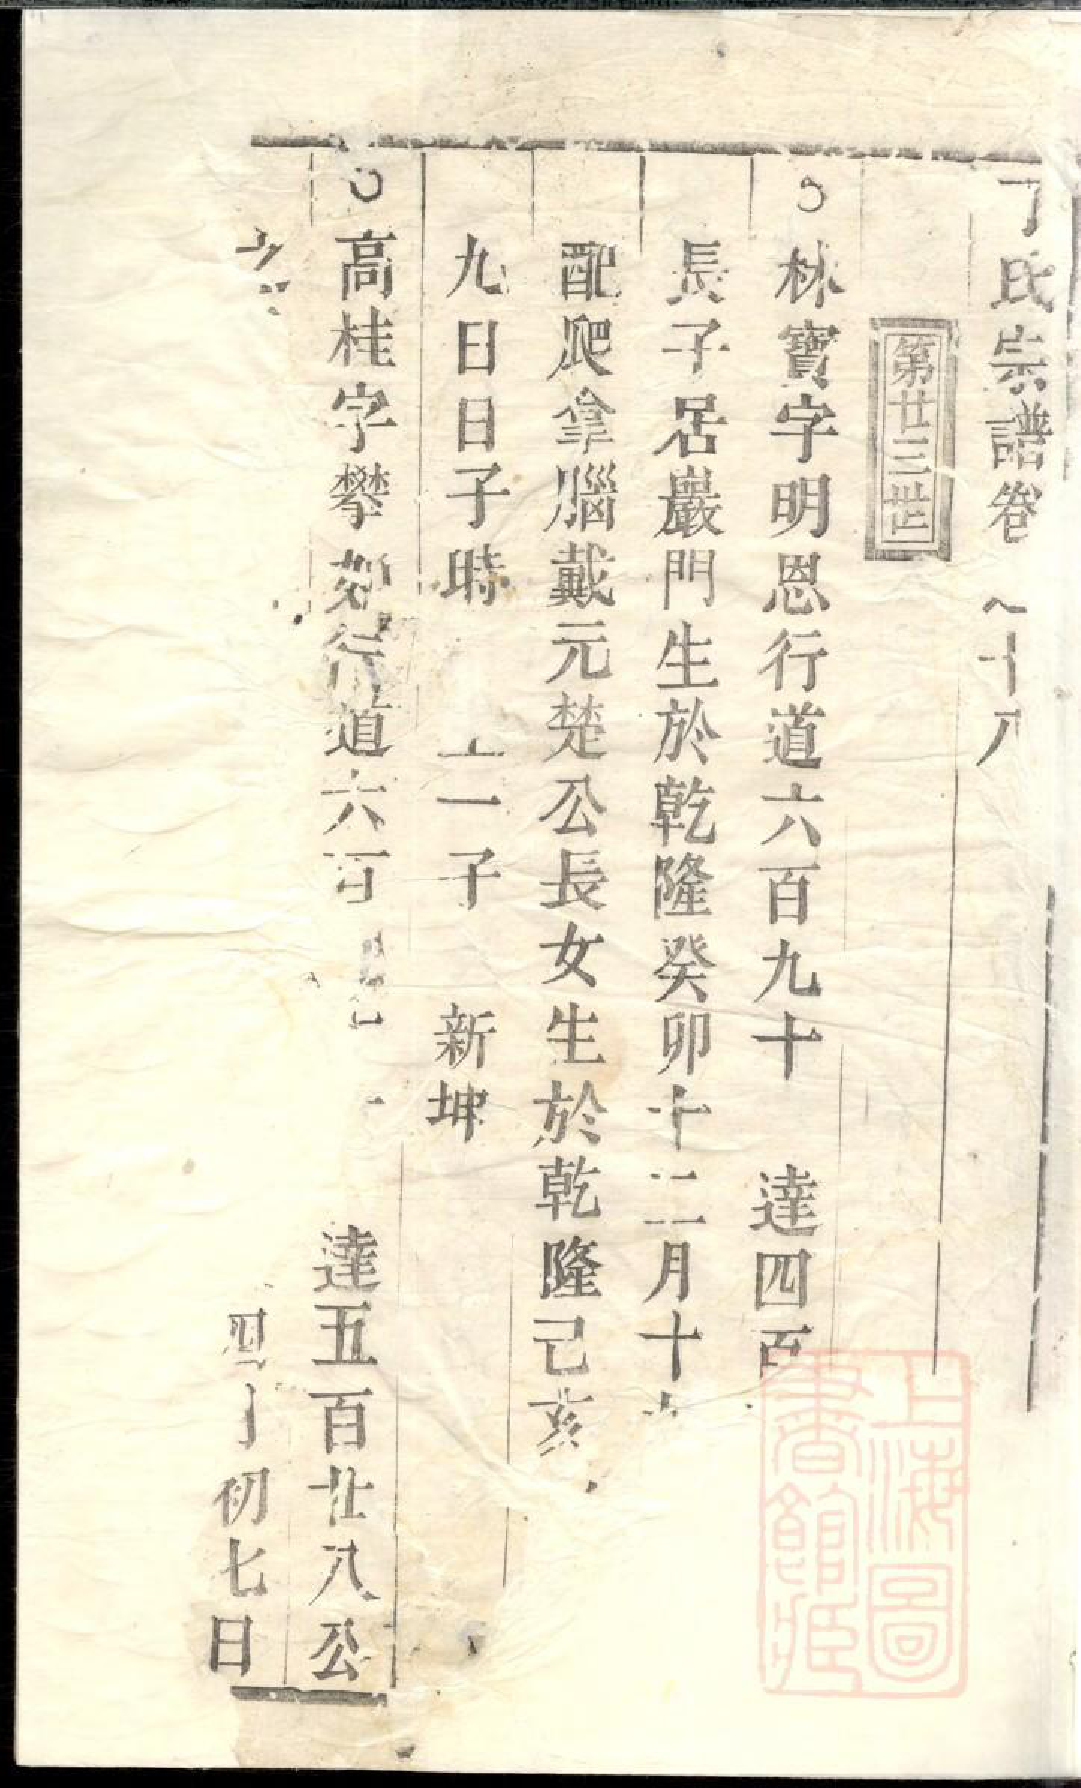 丁氏宗譜卷 十八
第廿三世
林寶字明恩行道六百九十 達四百
長子居巖門生於乾隆癸卯十二月十
配爬拿腦戴元楚公長女生於乾隆己亥
九日日子時 一子 新坤
高桂字攀 行道六百 達五百廿八公
四 初七日
上海圖書館藏